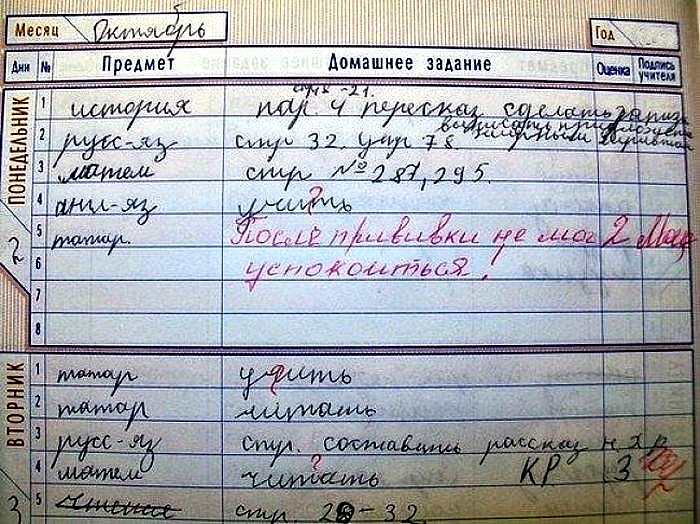 Месяц Октябрь Год
Дни № Предмет Домашнее задание Оценка Подпись учителя
ПОНЕДЕЛЬНИК 2
стр. -21.
1 история пар. 4 пересказ сделать
2 русс-яз стр 32. упр 78
3 матем стр № 287, 295.
4 англ-яз учить ?
5 татар. После прививки не мог 2
6 успокоиться!
7
8
ВТОРНИК 3
1 татар учить
2 татар читать
3 русс-яз стр. составить рассказ
4 матем читать ? КР 3
5 чтение стр. 28-32.